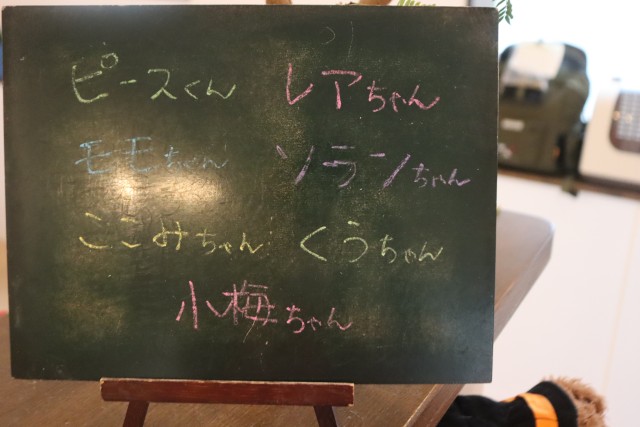 ピースくん レアちゃん
モモちゃん ソランちゃん
ここみちゃん くうちゃん
小梅ちゃん